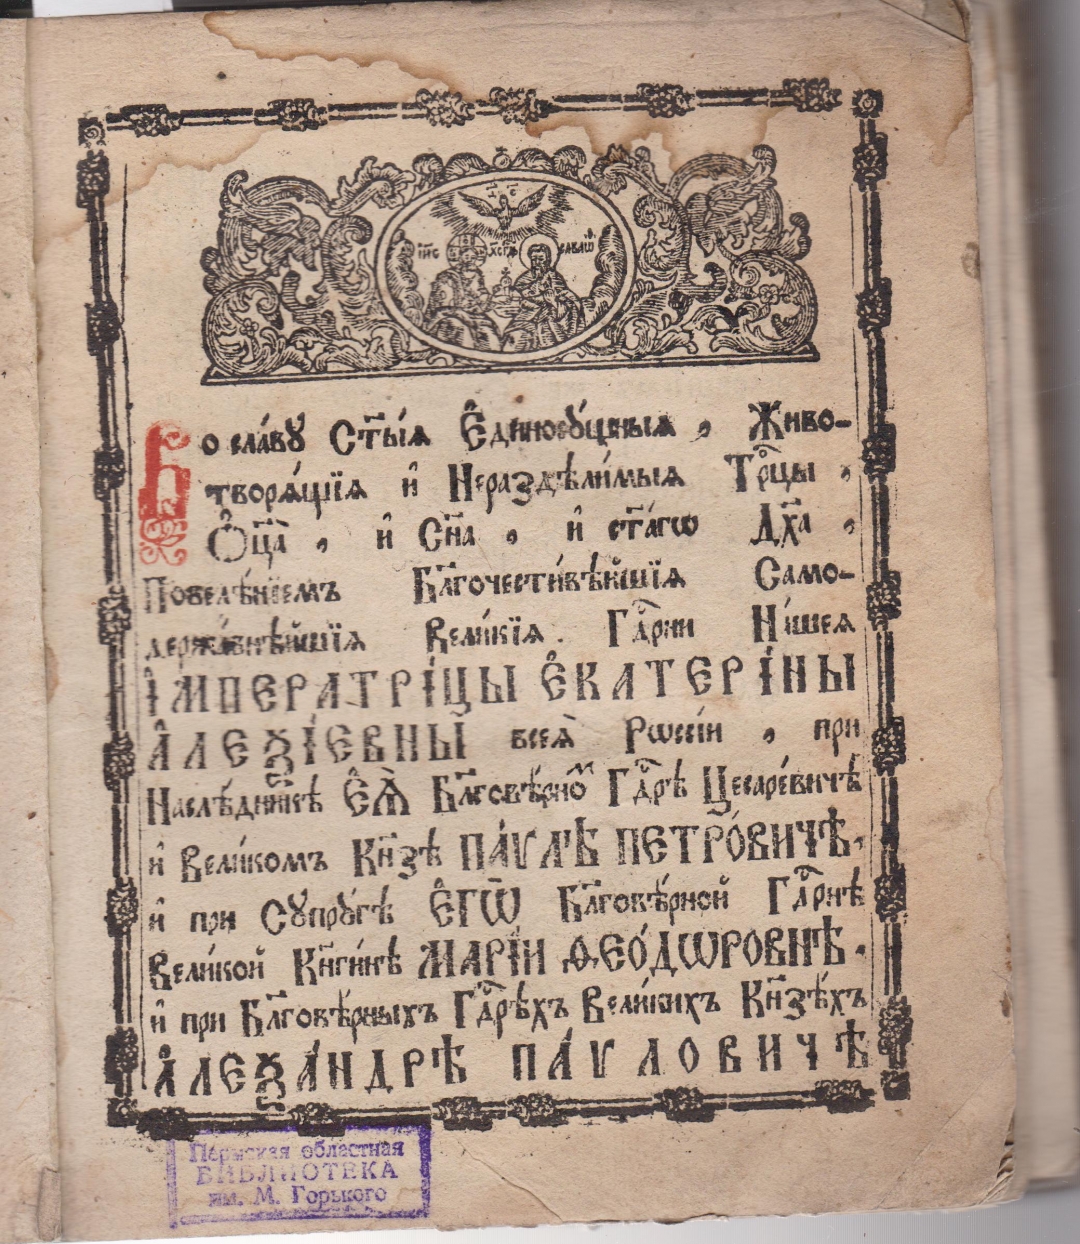 І҃С
І҆И҃С Х҃С САВАѠ҆
Во сла́ву Ст҃ы́ѧ Є҆диносꙋ́щныѧ , Живо-
творѧ́щїѧ и҆ Нераздѣли́мыѧ Трⷪ҇цы ,
Ѻ҆ц҃а̀ , и҆ Сн҃а , и҆ ст҃а́гѡ Дх҃а ,
Повелѣ́нїемъ Бл҃гочести́вѣйшїѧ Само-
держа́внѣйшїѧ Вели́кїѧ Гдⷭ҇рни На́шеѧ
І҆МПЕРАТРІ́ЦЫ Є҆КАТЕРІ́НЫ
А҆ЛЕѮІ́ЕВНЫ всеѧ̀ Рѡссі́и , при
Наслѣ́дникѣ Є҆Ѧ̀ Бл҃говѣ́рномъ Гдⷭ҇рѣ Цесаре́вичѣ
и҆ Вели́комъ Кн҃зѣ ПА́ѴЛѢ ПЕТРО́ВИЧѢ,
и҆ при Сꙋпрꙋ́гѣ Є҆ГѠ̀ Бл҃говѣ́рной Гдⷭ҇рнѣ
Вели́кой Кн҃ги́нѣ МАРІ́И ѲЕО́ДѠРОВНѢ.
и҆ при Бл҃говѣ́рныхъ Гдⷭ҇рѣхъ Вели́кихъ Кн҃зѣ́хъ
А҆ЛЕѮА́НДРѢ ПА́ѴЛОВИЧѢ
Пермская областная
БИБЛИОТЕКА
им. М. Горького